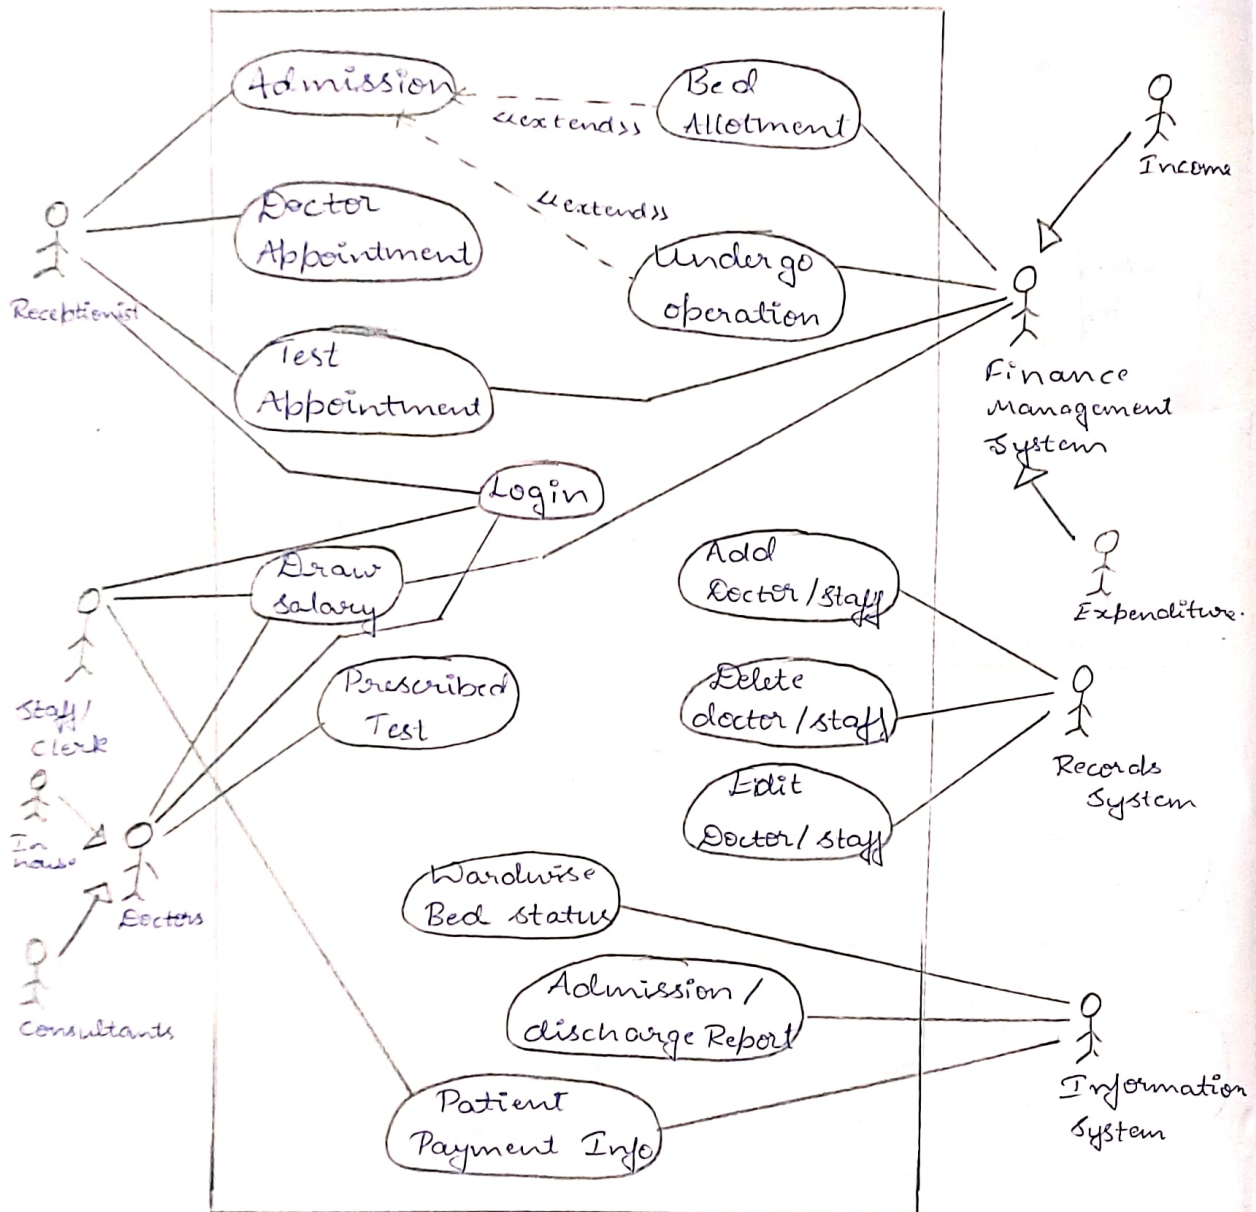 Admission
Bed
Allotment
<<extend>>
Income
Doctor
Appointment
<<extend>>
Undergo
operation
Receptionist
Test
Appointment
Finance
Management
System
Login
Draw
Salary
Add
Doctor/staff
Expenditure.
Prescribed
Test
Delete
doctor/staff
Staff/
Clerk
Records
System
In
house
Edit
Doctor/staff
Doctors
Wardwise
Bed status
Consultants
Admission/
discharge Report
Information
System
Patient
Payment Info